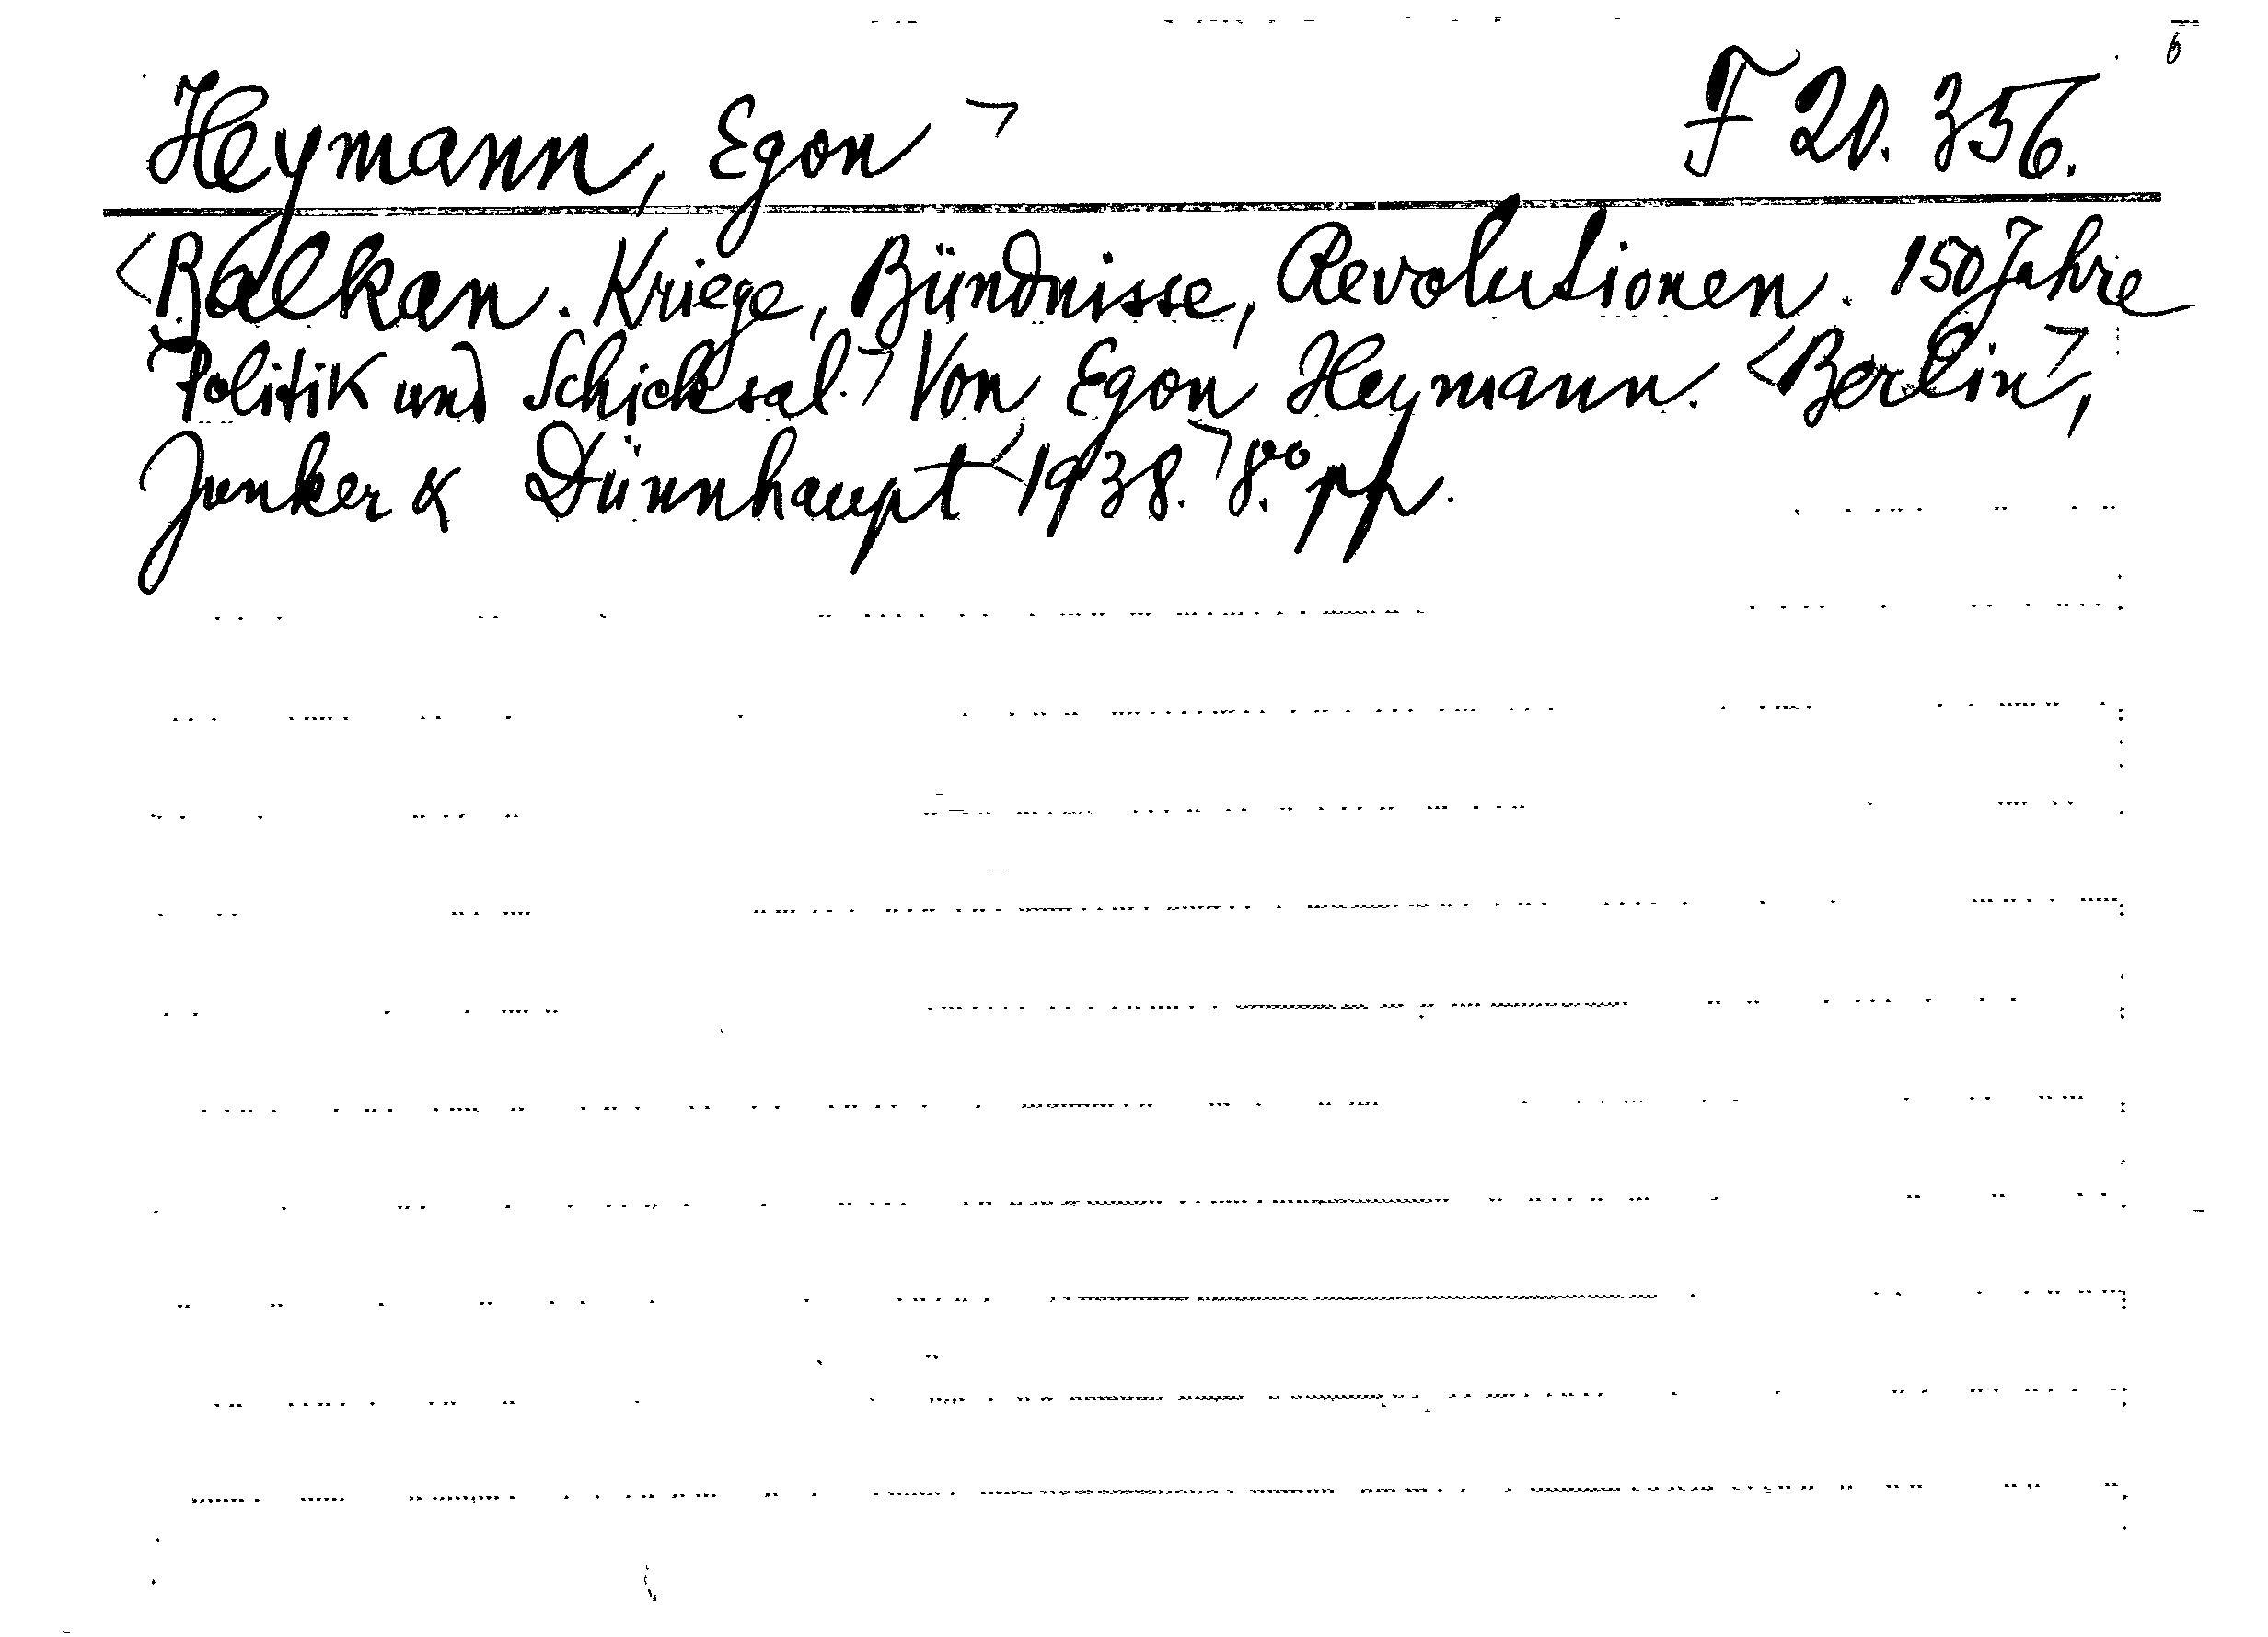 Heymann, Egon ⌝ F 20. 356.
<Balkan. Kriege, Bündnisse, Revolutionen. 150 Jahre
Politik und Schicksal.⌝ Von Egon Heymann. <Berlin⌝,
Junker & Dünnhaupt <1938.⌝ 8.° pp.